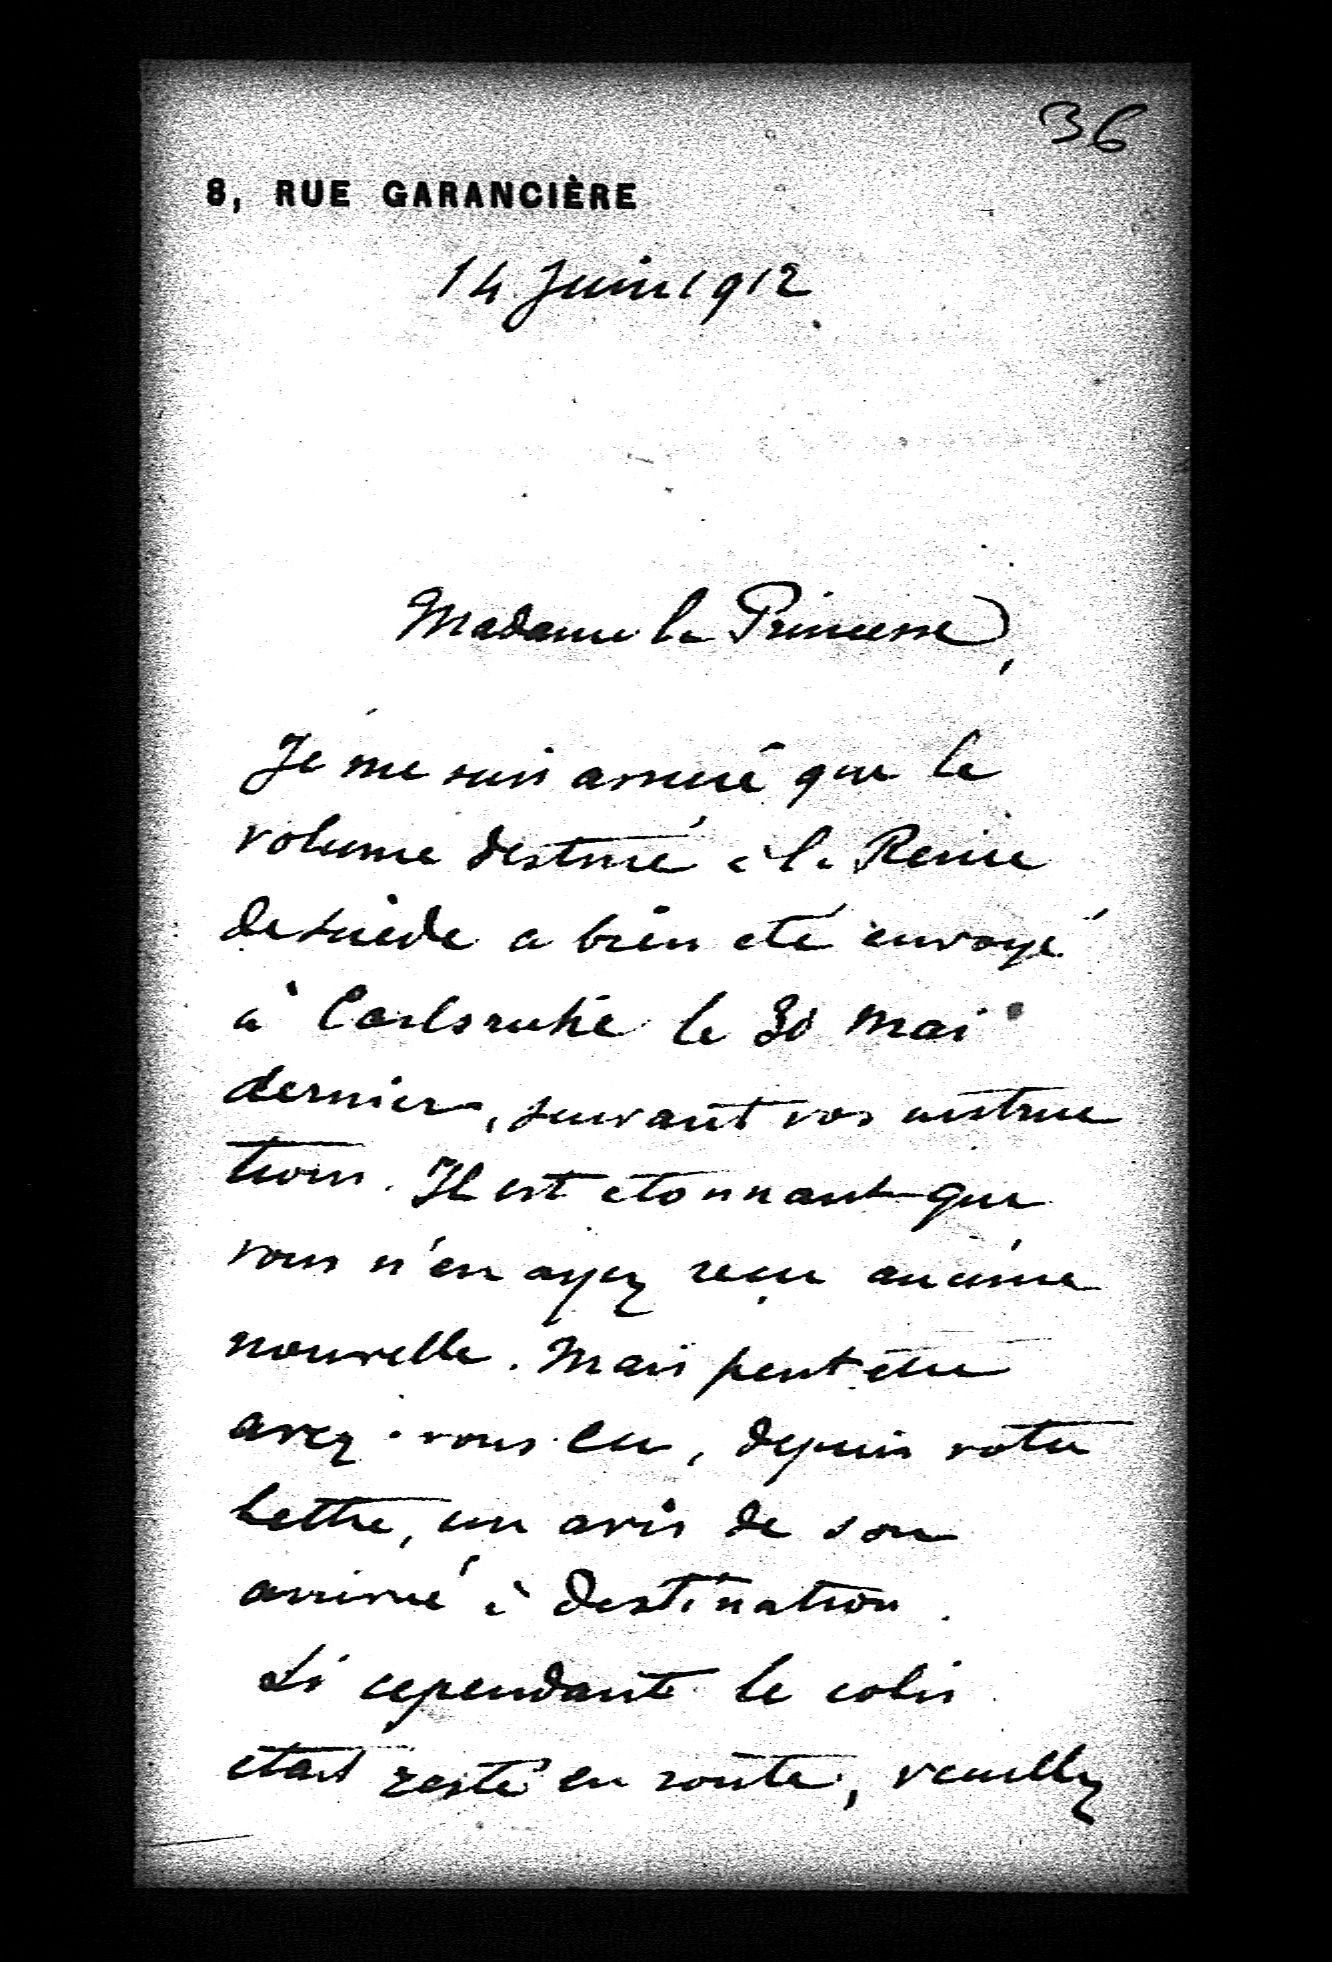 36
8, RUE GARANCIÈRE
14 Juin 1912
Madame la Princesse,
Je me suis assuré que le
volume destiné à la Reine
de Suède a bien été envoyé
à Carlsruhe le 30 Mai
dernier, suivant vos instruc
tions. Il est étonnant que
vous n'en ayez reçu aucune
nouvelle. Mais peut être
avez-vous eu, depuis votre
lettre, un avis de son
arrivée à destination.
Si cependant le colis
était resté en route, veuillez